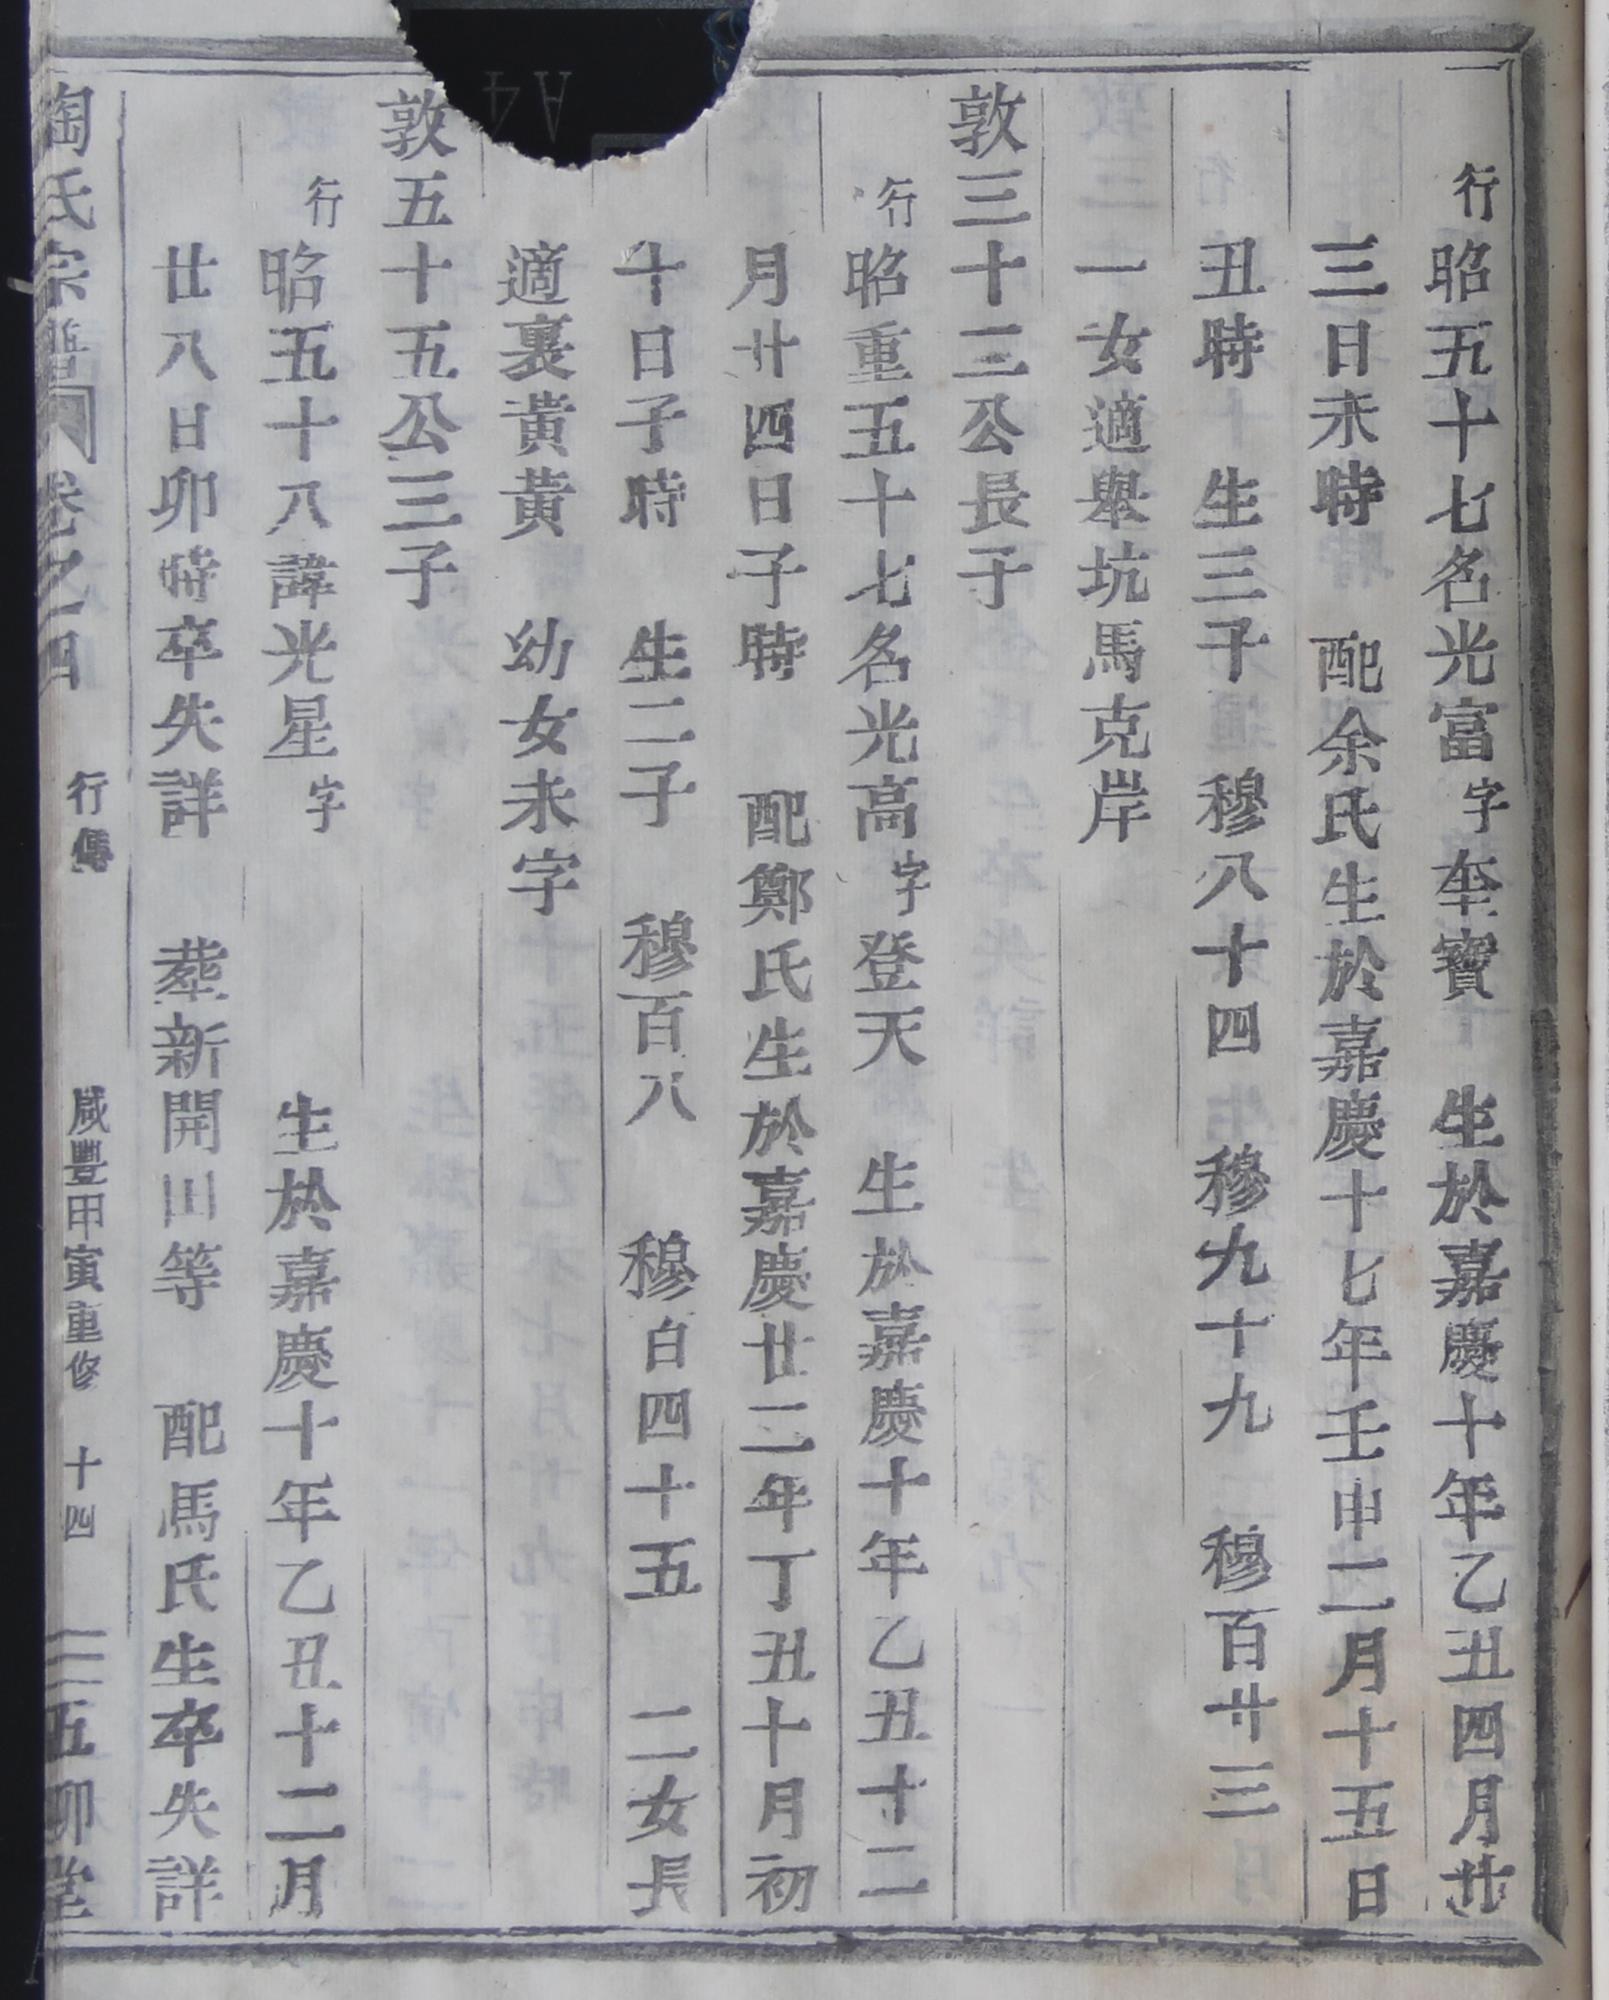 行昭五十七名光富字奎寶　生於嘉慶十年乙丑四月廿
三日未時　配余氏生於嘉慶十七年壬申二月十五日
丑時　生三子　穆八十四　穆九十九　穆百廿三
一女適舉坑馬克岸
敦三十三公長子
行昭重五十七名光高字登天　生於嘉慶十年乙丑十二
月廿四日子時　配鄭氏生於嘉慶廿二年丁丑十月初
十日子時　生二子　穆百八　穆百四十五　二女長
適裏黃黃　幼女未字
敦五十五公三子
行昭五十八諱光星字　生於嘉慶十年乙丑十二月
廿八日卯時卒失詳　葬新開田等　配馬氏生卒失詳
陶氏宗譜　卷之四　行傳　咸豐甲寅重修　十四　五柳堂